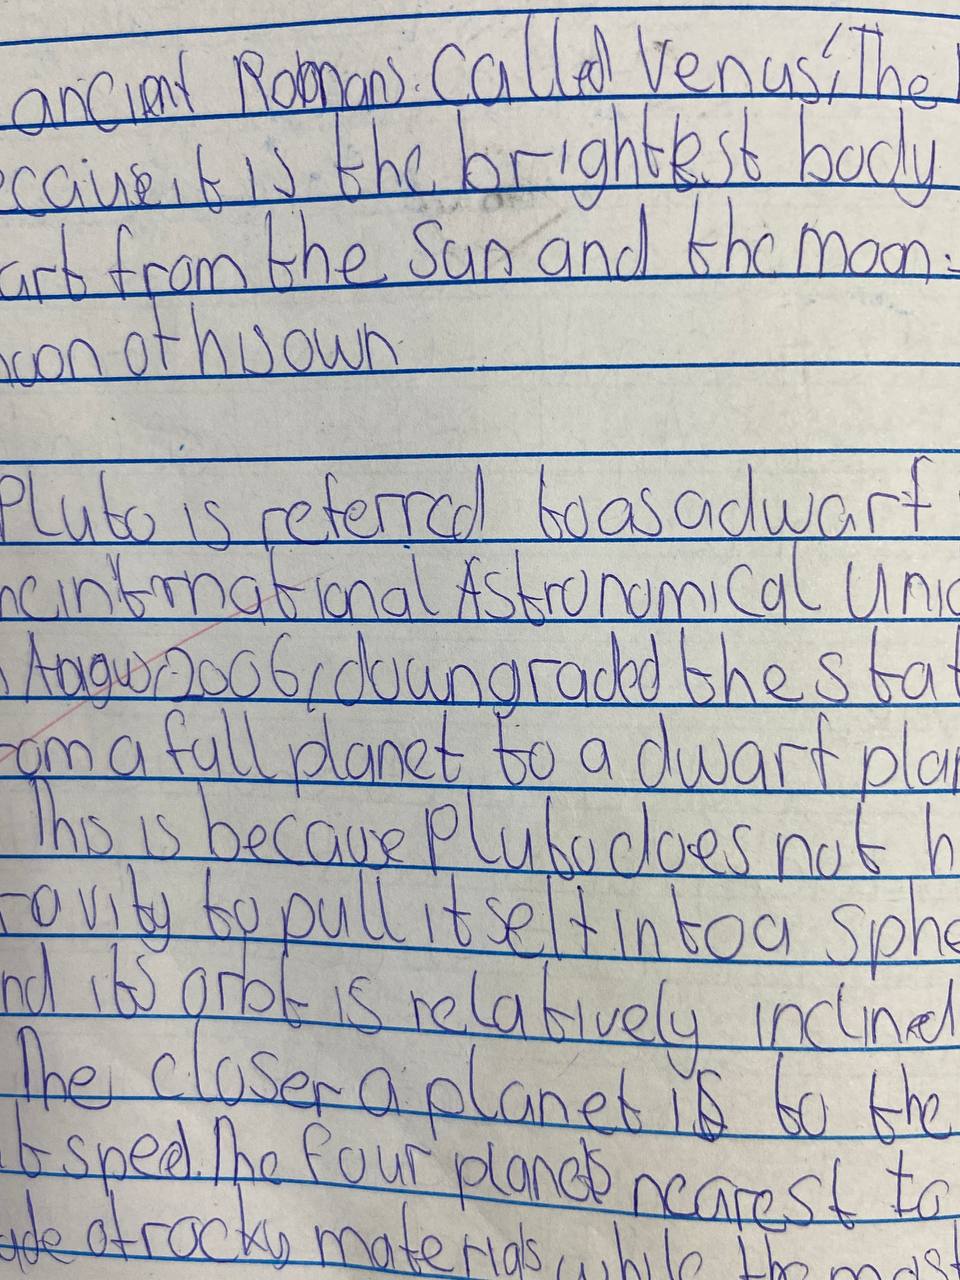 ancient Romans. Called Venus, 'The
ecause it is the brightest body
art from the Sun and the moon.
moon of his own
Pluto is referred to as a dwarf
he international Astronomical Unio
August 2006, downgraded the stat
om a full planet to a dwarf plan
This is because Pluto does not h
ravity to pull itself into a sphe
nd its orbit is relatively inclined
The closer a planet is to the
it speed. The four planets nearest to
ade of rocky materials while the most